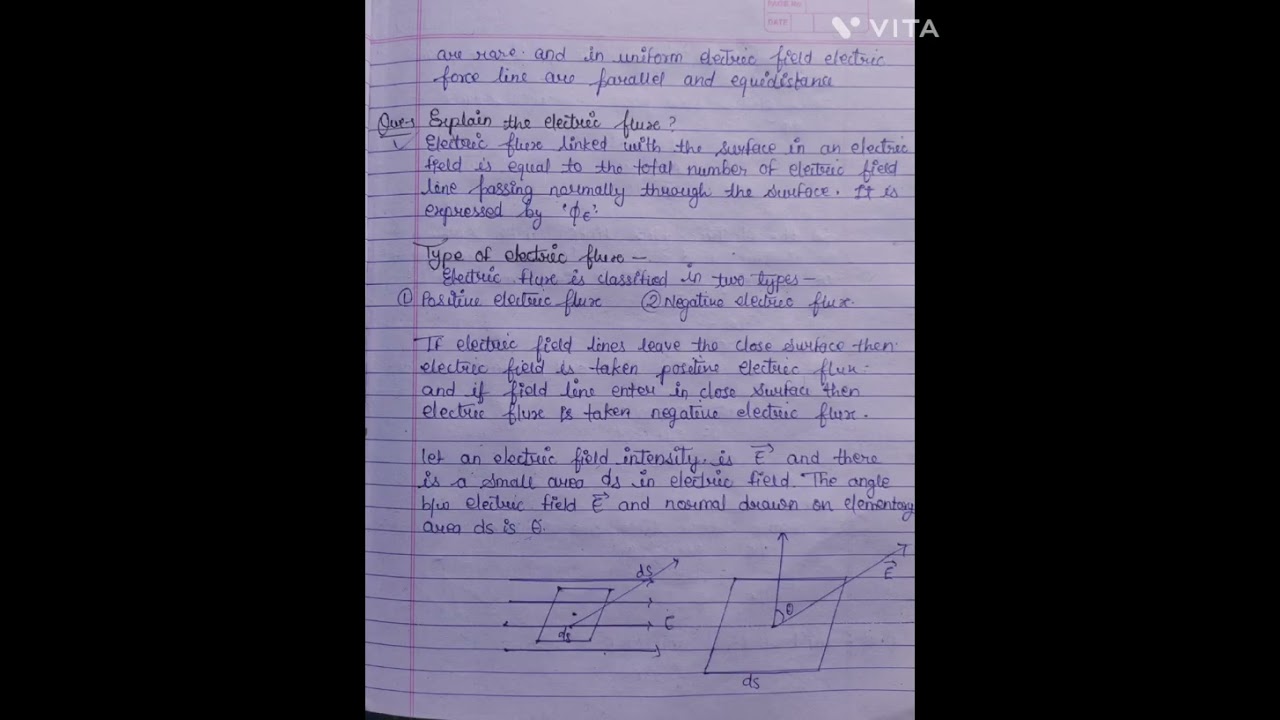 PAGE No.
DATE
VITA
are rare. and in uniform electric field electric
force line are parallel and equidistance
Ques Explain the electric flux?
Electric flux linked with the surface in an electric
field is equal to the total number of electric field
line passing normally through the surface. It is
expressed by 'ϕε'.
Type of electric flux -
Electric flux is classified in two types -
① Positive electric flux ② Negative electric flux.
If electric field lines leave the close surface then
electric field is taken positive electric flux.
and if field line enter in close surface then
electric flux is taken negative electric flux.
let an electric field intensity. is E⃗ and there
is a small area ds in electric field. The angle
b/w electric field E⃗ and normal drawn on elementary
area ds is θ.
ds
E⃗
θ
E
ds
ds